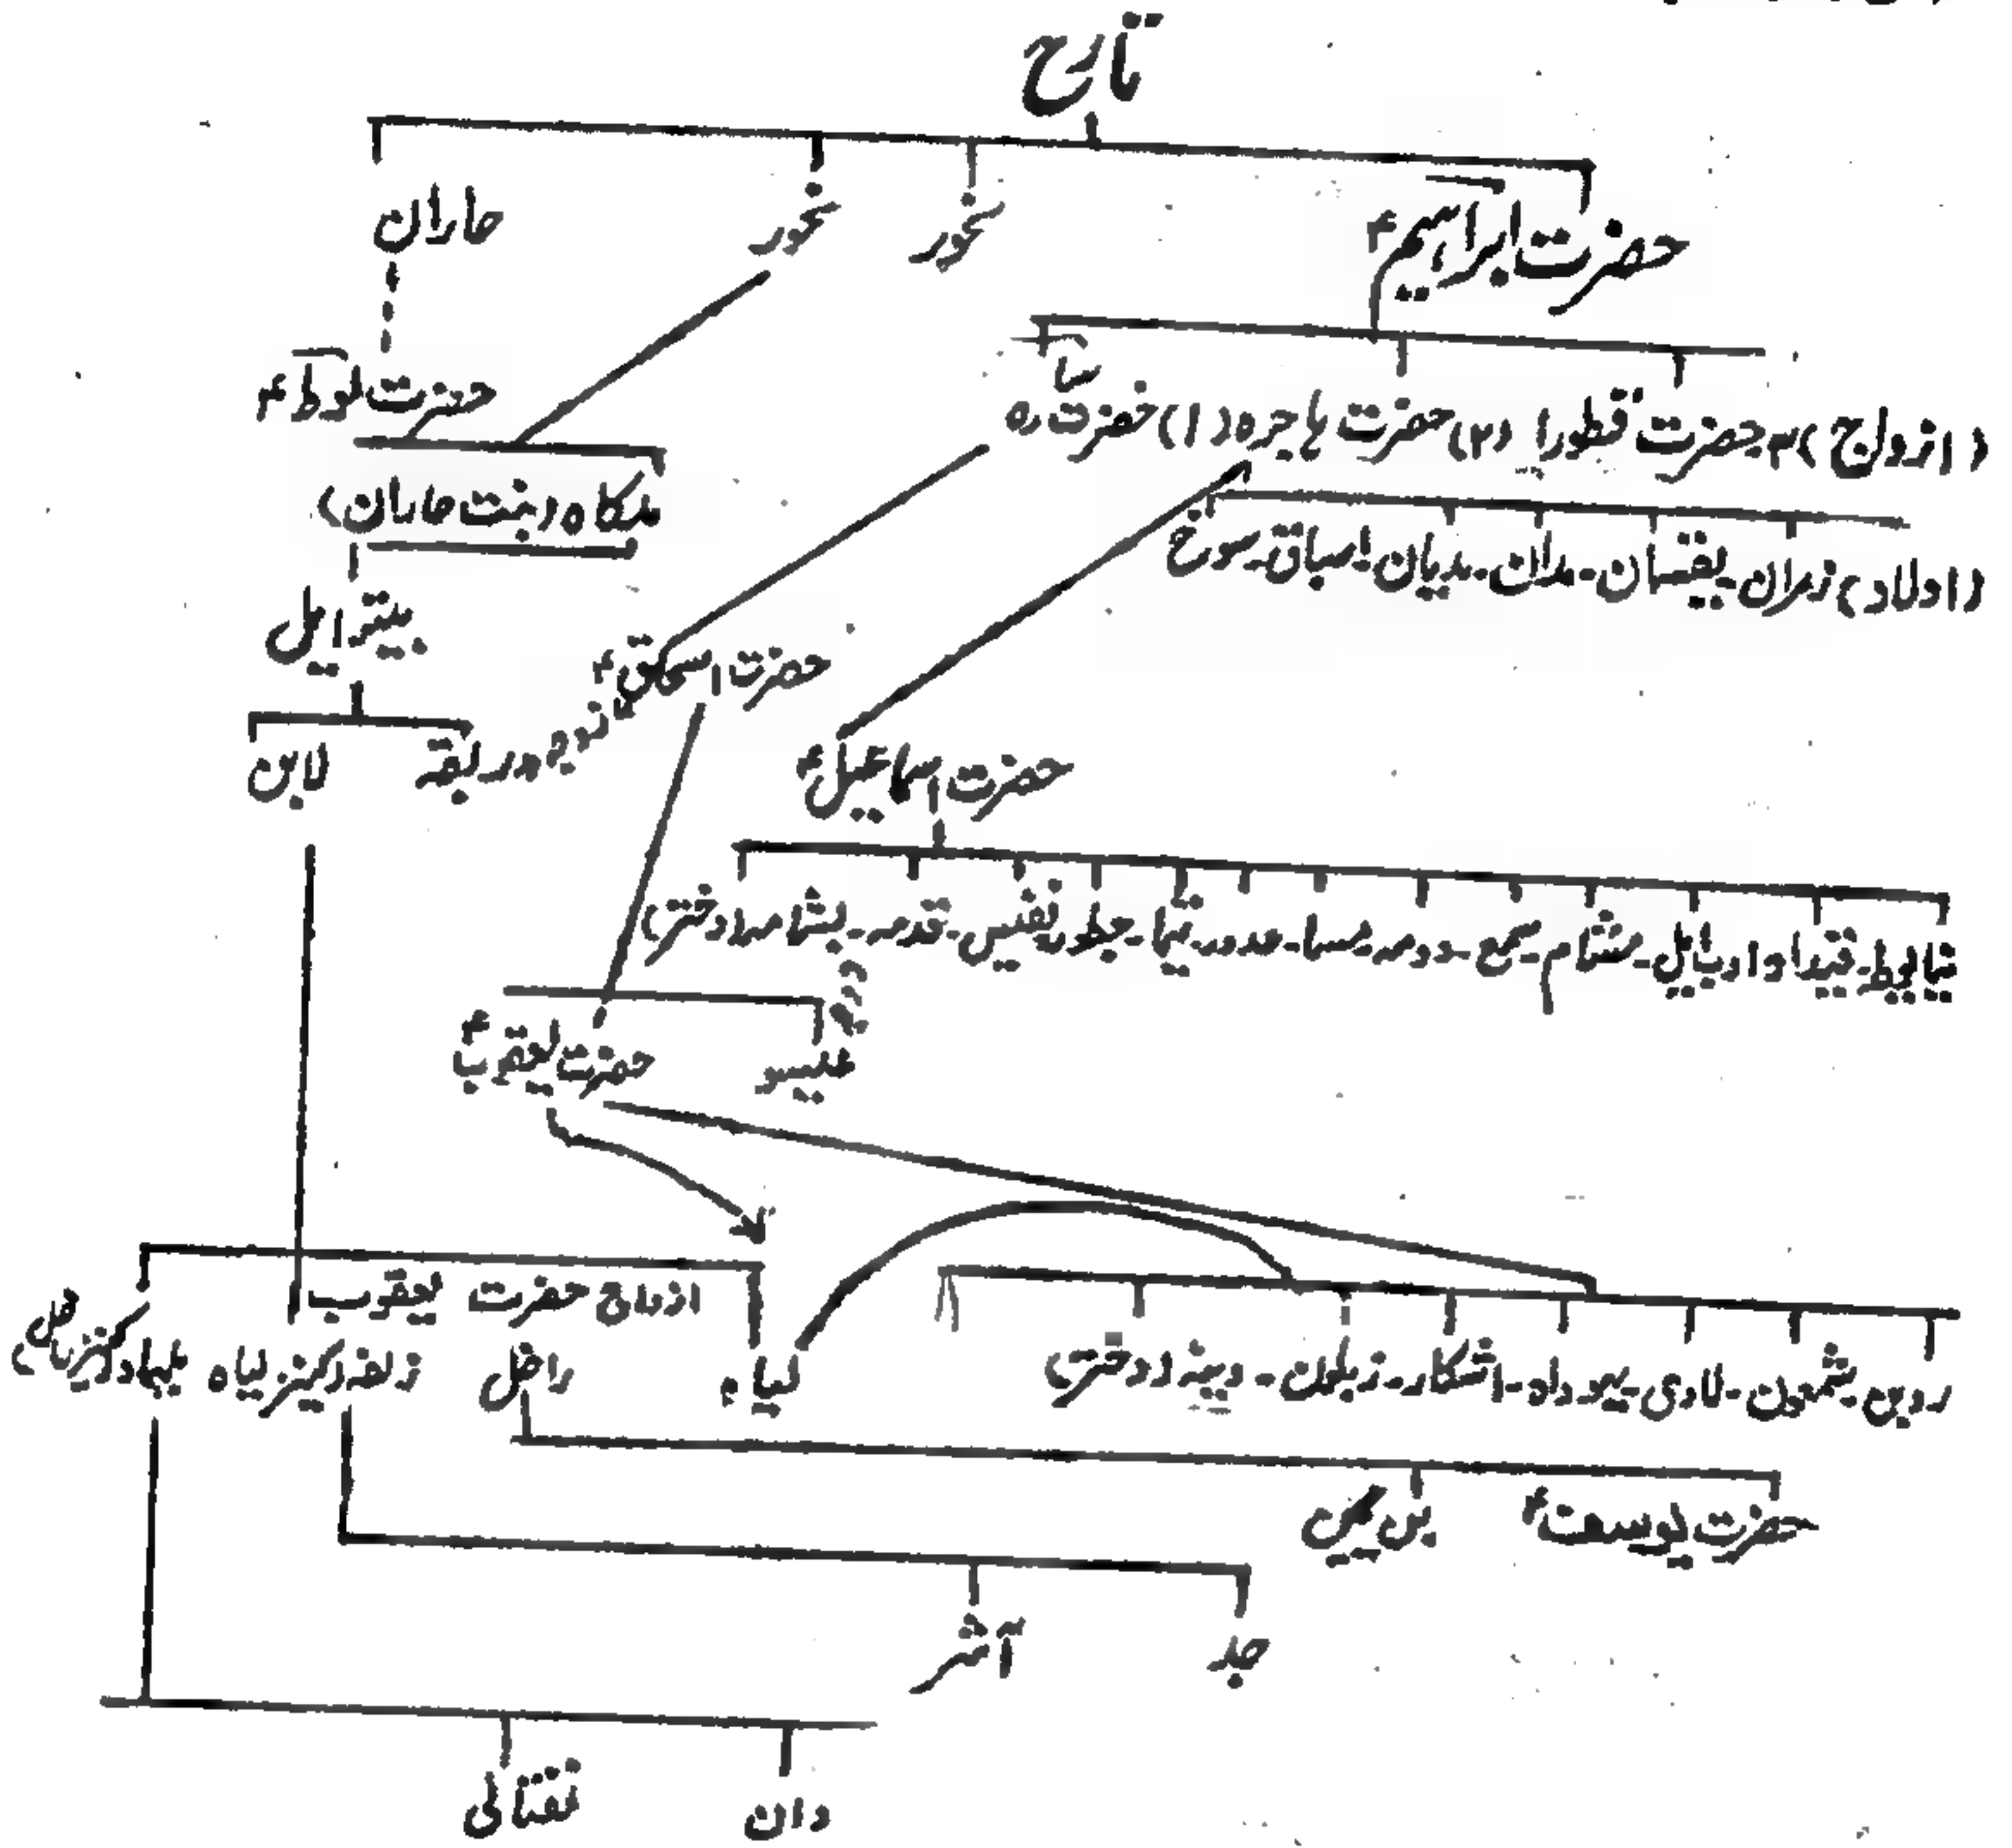 تارح
حضرت ابراہیمؑ نحور نحور حاران
حضرت لوطؑ
(ازواج) ۳۔ حضرت قطورا (۲) حضرت ہاجرہ (۱) حضرت سارہ
ملکاہ (بنت حاران)
(اولاد) زمران۔ یقسان۔ مدان۔ مدیان۔ اسباق۔ سوخ
بیتوایل
حضرت اسحاقؑ
زوجہ ربقہ لابن
حضرت اسماعیلؑ
نیابوط۔ قیدار ادبائیل۔ مشام۔ سمع۔ دومہ۔ مسا۔ حدد۔ تیما۔ جطور نفیس۔ قدمہ۔ بشامہ (دختر)
زوجہ
عیسو حضرت یعقوبؑ
ازواج حضرت یعقوب
روبن۔ شمعون۔ لاوی۔ یہوداہ۔ اشکار۔ زبلون۔ دینہ (دختر) لیاہ راخل زلفہ (کنیز لیاہ بلہاہ (کنیز راخل)
حضرت یوسفؑ بن یمین
جد آشر
دان نفتالی